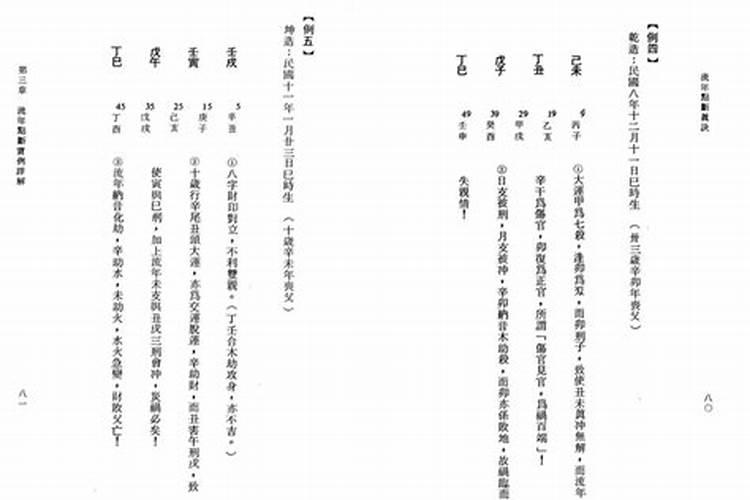 流年點斷真訣
【例四】
乾造：民國八年十二月十一日巳時生　（卅三歲辛卯年喪父）
己未
丁丑
戊子
丁巳
9 丙子
19 乙亥
29 甲戌
39 癸酉
49 壬申
①大運甲為七殺，逢卯為刃，而卯刑子，致使丑未真冲無解，而流年
辛干為傷官，卯復為正官，所謂「傷官見官，為禍百端」！
②日支被刑，月支被冲，辛卯納音木助殺，而卯亦係敗地，故禍臨而
失親情！
八〇
【例五】
坤造：民國十一年一月廿三日巳時生　（十歲辛未年喪父）
壬戌
壬寅
戊午
丁巳
5 辛丑
15 庚子
25 己亥
35 戊戌
45 丁酉
①八字財印對立，不利雙親。（丁壬合木助攻身，亦不吉。）
②十歲行辛尾丑頭大運，亦為交運脫運，辛助財，而丑害午刑戌，致
使寅與巳刑，加上流年未支與丑戌三刑會冲，災禍必矣！
③流年納音化劫，辛助水，未助火，水火急變，財敗父亡！
第三章　流年點斷實例詳解
八一